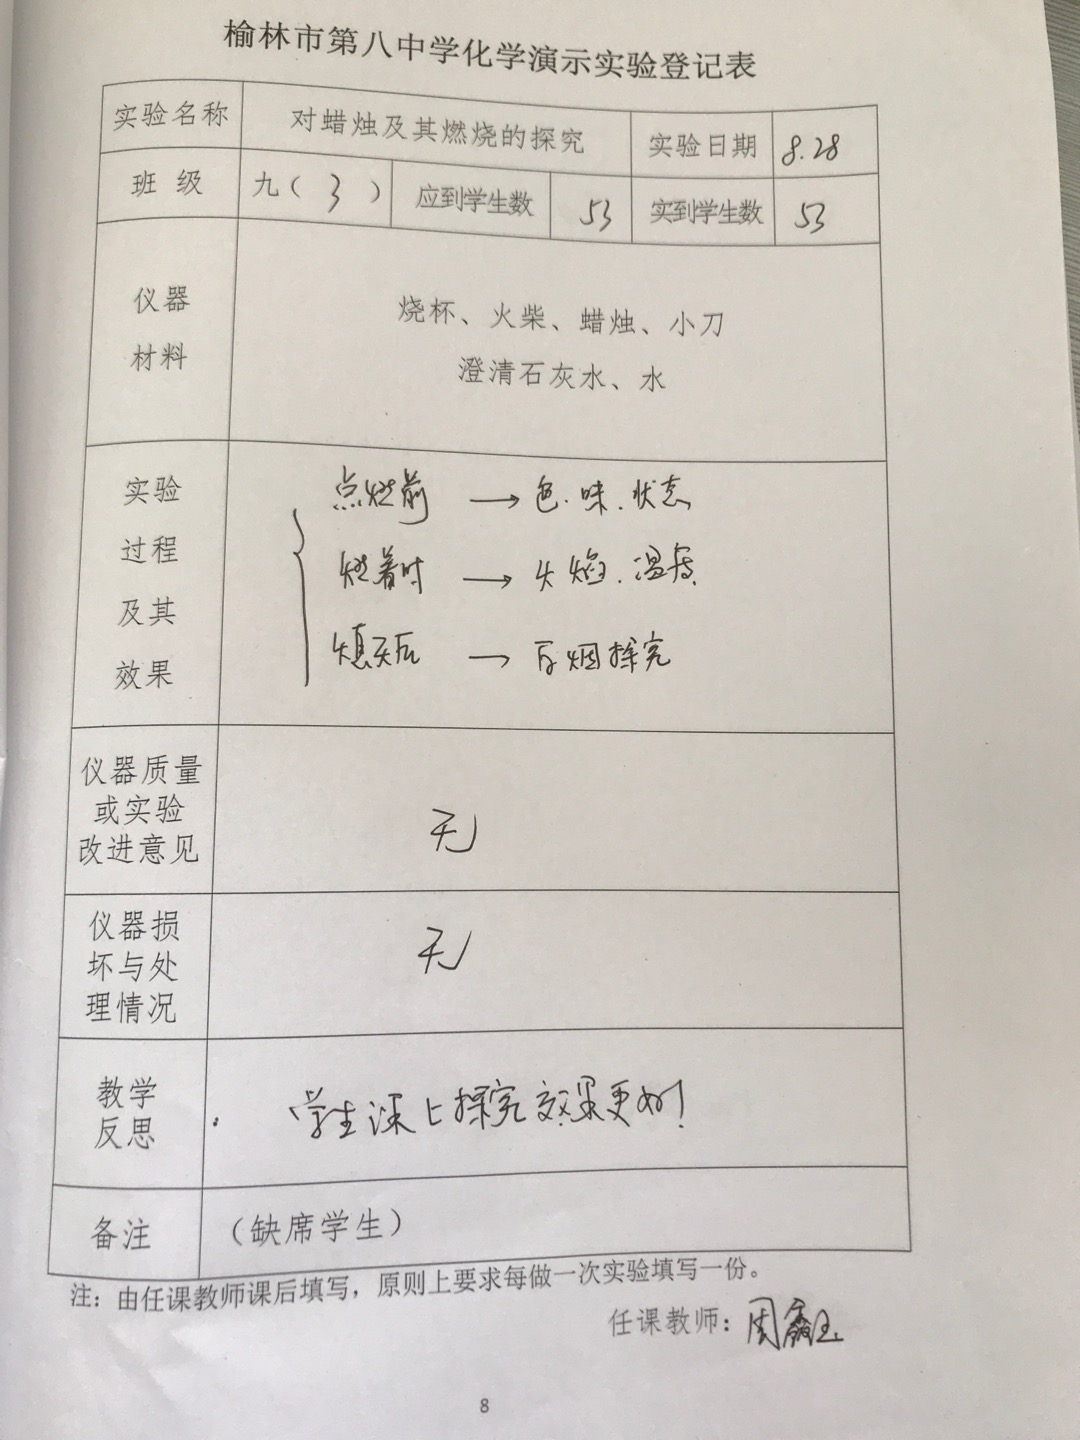 榆林市第八中学化学演示实验登记表
实验名称 对蜡烛及其燃烧的探究 实验日期 8.28
班 级 九（ 3 ） 应到学生数 53 实到学生数 53
仪器
材料
烧杯、火柴、蜡烛、小刀
澄清石灰水、水
实验
过程
及其
效果
点燃前 → 色.味.状态
燃着时 → 火焰.温度
熄灭后 → 白烟探究
仪器质量
或实验
改进意见
无
仪器损
坏与处
理情况
无
教学
反思
学生课上探究效果更好!
备注 （缺席学生）
注：由任课教师课后填写，原则上要求每做一次实验填写一份。
任课教师：周
8